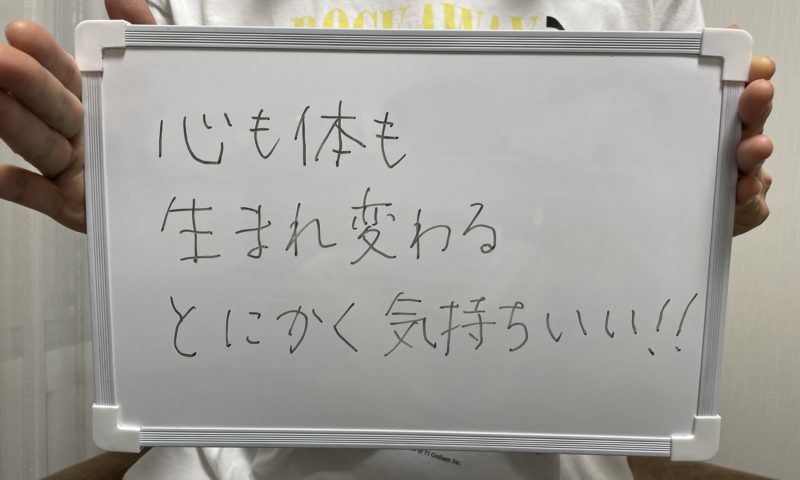 ROCKAWAY
心も体も
生まれ変わる
とにかく気持ちいい!!